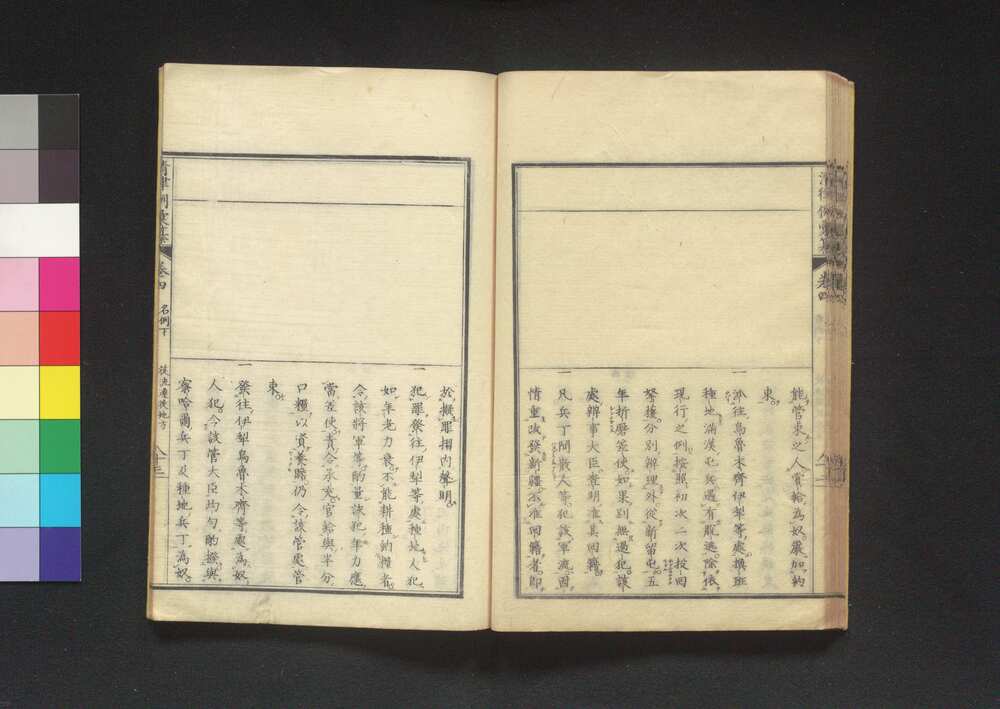 能管束之人賞給為奴嚴加約
束
一派往烏魯木齊伊犁等處換班
種地滿漢屯兵遇有脫逃除依
現行之例按照初次二次投回
拏獲分別辦理外從新留屯五
年折磨差使如果別無過犯該
處辦事大臣查明准其回籍
一凡兵丁閒散人等犯該軍流因
情重改發新疆不准回籍者即
於擬罪摺內聲明
一犯罪發往伊犁等處種地人犯
如年老力衰不能耕種納糧者
令該將軍等酌量該犯年力應
當差使責令承充官給與半分
口糧以資養贍仍令該管處管
束
一發往伊犁烏魯木齊等處為奴
人犯令該管大臣均勻酌撥與
察哈爾兵丁及種地兵丁為奴
卷四
名例下
徒流遷徙地方